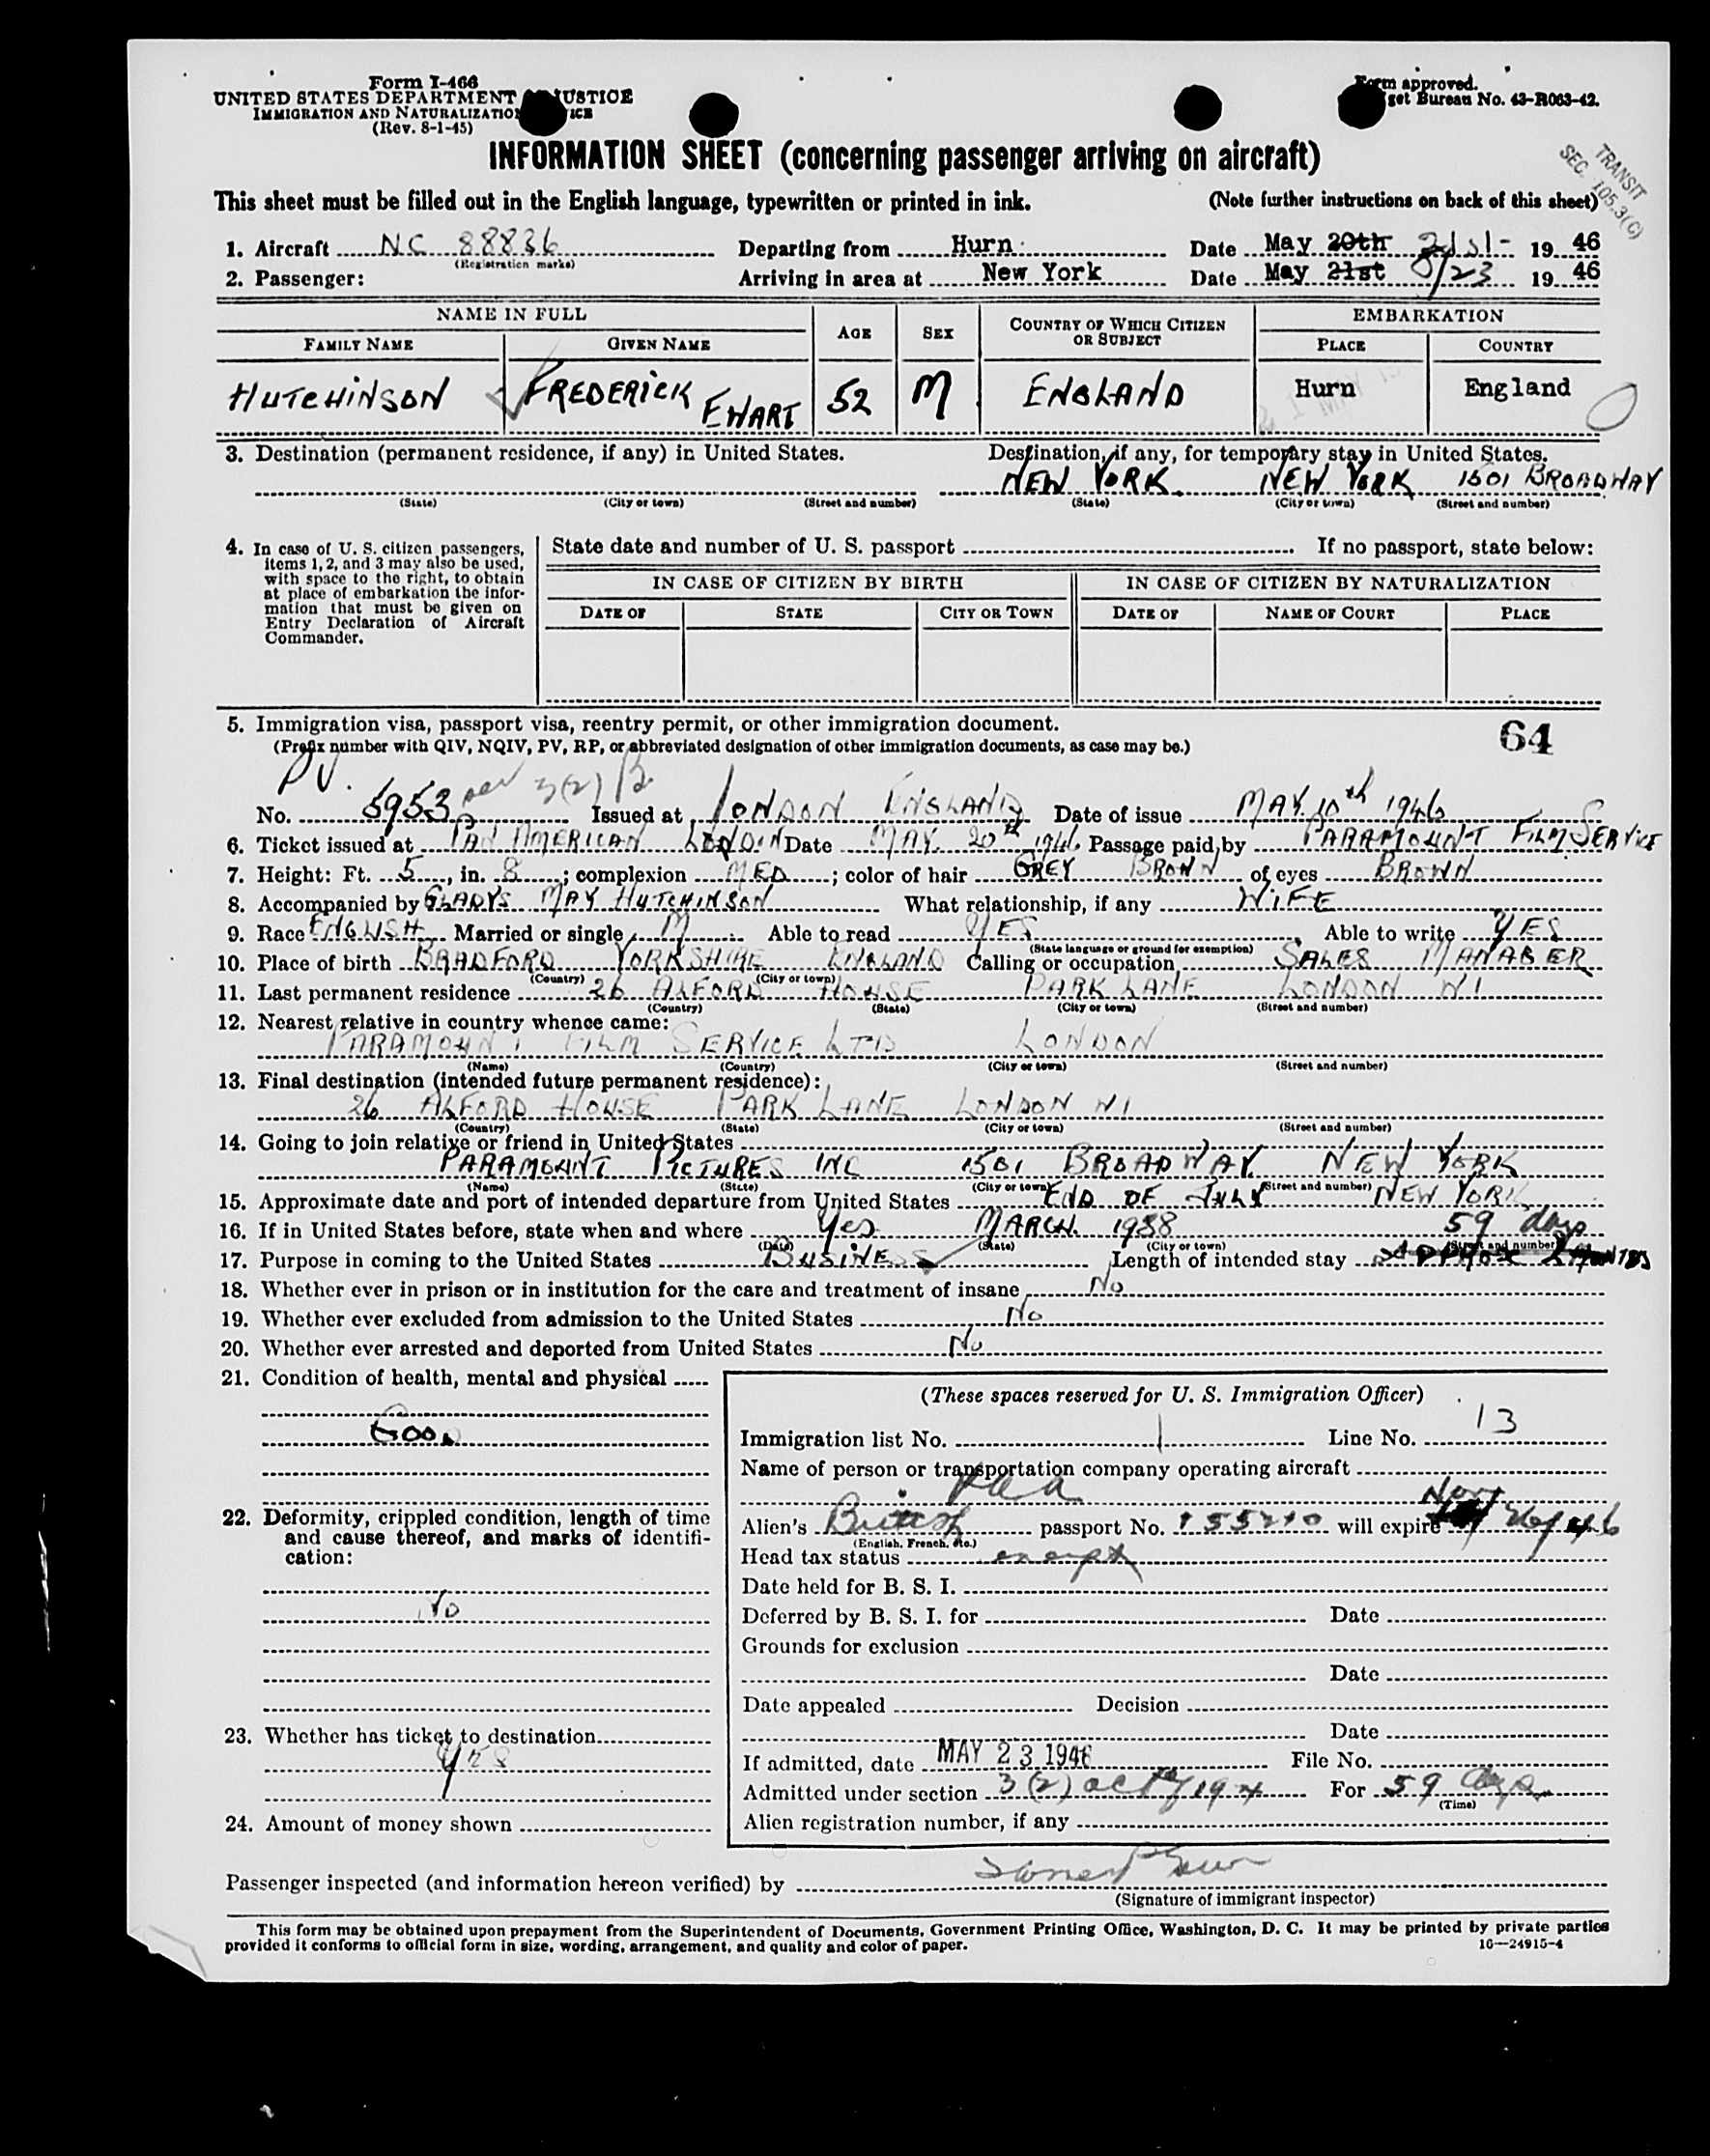 Form I-466
UNITED STATES DEPARTMENT JUSTICE
IMMIGRATION AND NATURALIZATION
(Rev. 8-1-45)
Form approved.
get Bureau No. 43-R063-42.
INFORMATION SHEET (concerning passenger arriving on aircraft)
TRANSIT
SEC. 105.3(C)
This sheet must be filled out in the English language, typewritten or printed in ink. (Note further instructions on back of this sheet)
1. Aircraft NC 88836 Departing from Hurn Date May 20th 21st 19 46
(Registration marks)
2. Passenger: Arriving in area at New York Date May 21st 5/23 19 46
NAME IN FULL AGE SEX COUNTRY OF WHICH CITIZEN OR SUBJECT EMBARKATION
FAMILY NAME GIVEN NAME PLACE COUNTRY
HUTCHINSON FREDERICK EWART 52 M ENGLAND Hurn England
3. Destination (permanent residence, if any) in United States. Destination, if any, for temporary stay in United States.
NEW YORK NEW YORK 1501 BROADWAY
(State) (City or town) (Street and number) (State) (City or town) (Street and number)
4. In case of U. S. citizen passengers, items 1, 2, and 3 may also be used, with space to the right, to obtain at place of embarkation the information that must be given on Entry Declaration of Aircraft Commander.
State date and number of U. S. passport If no passport, state below:
IN CASE OF CITIZEN BY BIRTH IN CASE OF CITIZEN BY NATURALIZATION
DATE OF STATE CITY OR TOWN DATE OF NAME OF COURT PLACE
5. Immigration visa, passport visa, reentry permit, or other immigration document.
64
(Prefix number with QIV, NQIV, PV, RP, or abbreviated designation of other immigration documents, as case may be.)
PV. 3(2) B
No. 5953 Issued at LONDON ENGLAND Date of issue MAY 10th 1946
6. Ticket issued at PAN AMERICAN LONDON Date MAY 20th 1946 Passage paid by PARAMOUNT FILM SERVICE
7. Height: Ft. 5, in. 8; complexion MED; color of hair GREY BROWN of eyes BROWN
8. Accompanied by GLADYS MAY HUTCHINSON What relationship, if any WIFE
9. Race ENGLISH Married or single M Able to read YES Able to write YES
(State language or ground for exemption)
10. Place of birth BRADFORD YORKSHIRE ENGLAND Calling or occupation SALES MANAGER
(Country) (City or town)
11. Last permanent residence 26 ALFORD HOUSE PARK LANE LONDON W1
(Country) (State) (City or town) (Street and number)
12. Nearest relative in country whence came:
PARAMOUNT FILM SERVICE LTD LONDON
(Name) (Country) (City or town) (Street and number)
13. Final destination (intended future permanent residence):
26 ALFORD HOUSE PARK LANE LONDON W1
(Country) (State) (City or town) (Street and number)
14. Going to join relative or friend in United States
PARAMOUNT PICTURES INC 1501 BROADWAY NEW YORK
(Name) (State) (City or town) (Street and number)
15. Approximate date and port of intended departure from United States END OF JULY NEW YORK
16. If in United States before, state when and where Yes MARCH 1938 59 days
(Date) (State) (City or town) (Street and number)
17. Purpose in coming to the United States BUSINESS Length of intended stay
18. Whether ever in prison or in institution for the care and treatment of insane No
19. Whether ever excluded from admission to the United States No
20. Whether ever arrested and deported from United States No
21. Condition of health, mental and physical
GOOD
22. Deformity, crippled condition, length of time and cause thereof, and marks of identification:
No
23. Whether has ticket to destination
YES
24. Amount of money shown
(These spaces reserved for U. S. Immigration Officer)
Immigration list No. 1 Line No. 13
Name of person or transportation company operating aircraft
PAA
Alien's British passport No. 155210 will expire Nov 26/46
(English, French, etc.)
Head tax status exempt
Date held for B. S. I.
Deferred by B. S. I. for Date
Grounds for exclusion
Date
Date appealed Decision
Date
If admitted, date MAY 23 1946 File No.
Admitted under section 3(2) act of 1924 For 59 days
(Time)
Alien registration number, if any
Passenger inspected (and information hereon verified) by
(Signature of immigrant inspector)
This form may be obtained upon prepayment from the Superintendent of Documents, Government Printing Office, Washington, D. C. It may be printed by private parties
provided it conforms to official form in size, wording, arrangement, and quality and color of paper. 16—24915-4